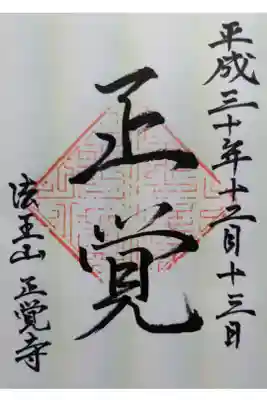 平成三十年十二月十三日
正覚
法王山 正覚寺